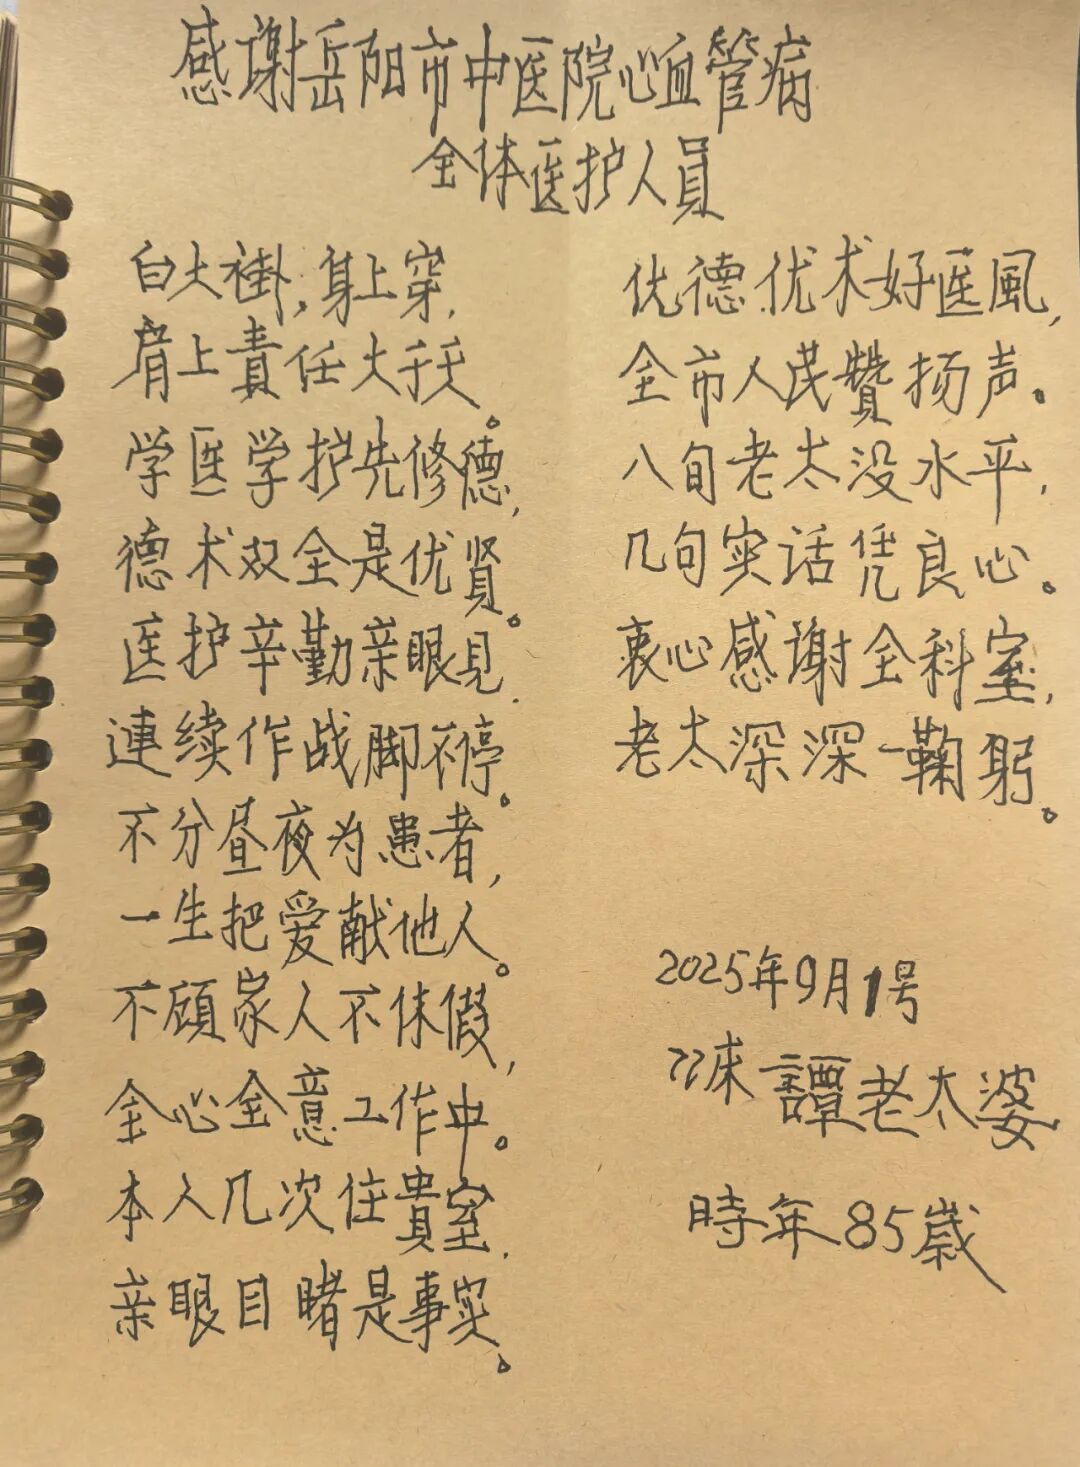 感谢岳阳市中医院心血管病
全体医护人員
白大褂,身上穿,
肩上責任大于天。
学医学护先修德,
德术双全是优贤。
医护辛勤亲眼見,
連续作战脚不停。
不分昼夜为患者,
一生把爱献他人。
不顧家人不休假,
全心全意工作中。
本人几次住貴室,
亲眼目睹是事实。
优德优术好医風,
全市人民贊扬声。
八旬老太没水平,
几句实话凭良心。
衷心感谢全科室,
老太深深一鞠躬。
2025年9月1号
22床譚老太婆
時年85歲